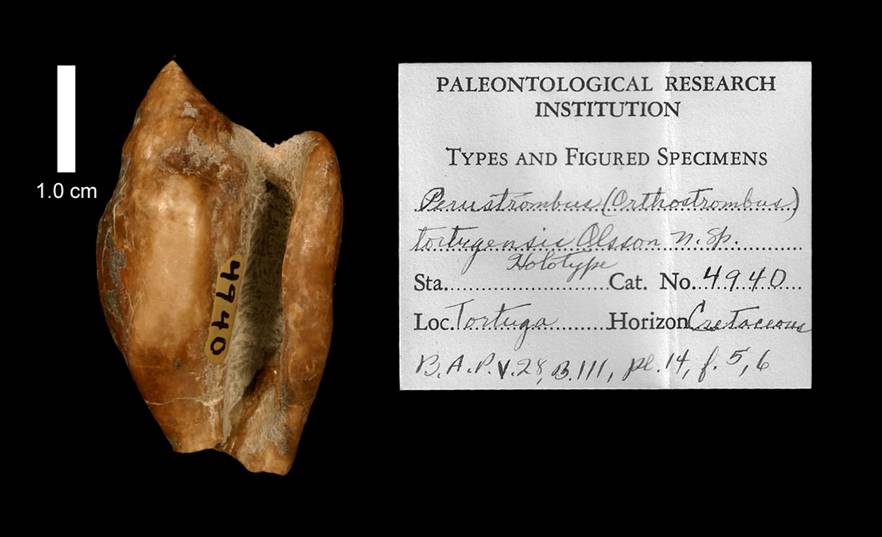 1.0 cm
4940
PALEONTOLOGICAL RESEARCH
INSTITUTION
TYPES AND FIGURED SPECIMENS
Perustrombus (Orthostrombus)
tortugensis Olsson n. sp.
Holotype
Sta. Cat. No. 4940
Loc. Tortuga Horizon Cretaceous
B.A.P. V.28, B.111, pl.14, f.5,6